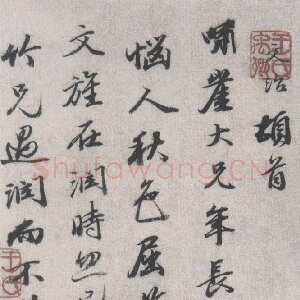 頓首
啸崖大兄年長
惱人秋色屈
文旌在潤時忽
於兄過潤而不
Shufawang.CN